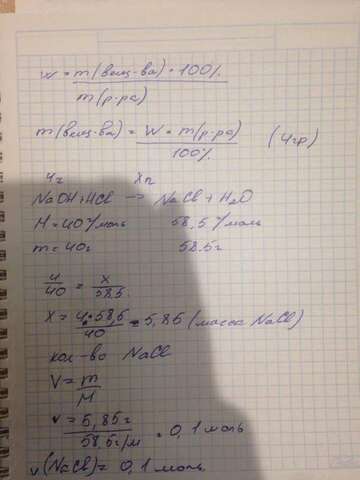 w = m(вещ-ва) · 100%
m(р-ра)
m(вещ-ва) = W = m(р-ра) (4гр)
100%
4г xг
NaOH + HCl → NaCl + H₂O
M = 40 г/моль 58,5 г/моль
m = 40г 58.5г
4/40 = x/58.5
X = 4·58,5/40 = 5,85 (масса NaCl)
кол-во NaCl
V = m/M
v = 5,85г/58.5г/м = 0,1 моль
v(NaCl) = 0,1 моль.